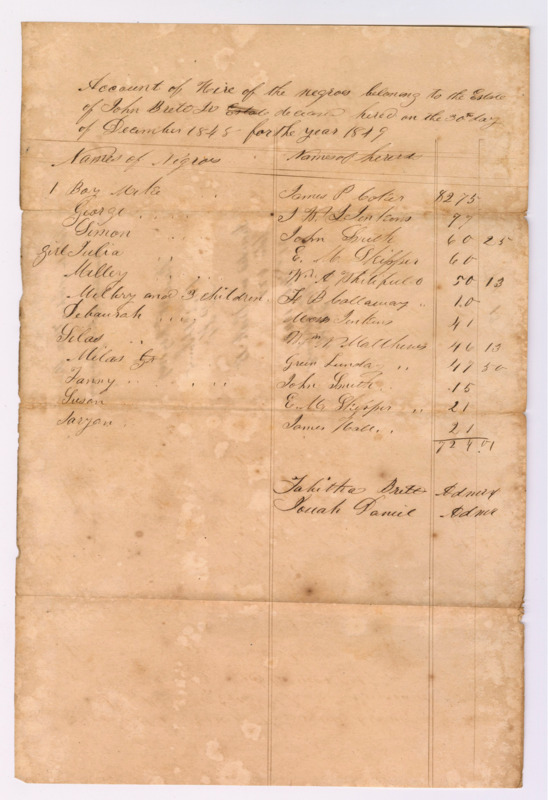 Account of Hire of the negroes belonging to the Estate
of John Britt Jr Estate deceasd hired on the 30th day
of December 1848 for the year 1849
Names of Negroes Names of hirers
1 Boy Mike James P. Coker
George J W S Jenkins 97
Simon John Smith 60 25
girl Julia E. M Skipper 60
Milley Wm A Whitfield 50 13
and 3 children F B Callaway 10
Deborah Jenkins 41
Silas Wm N Matthews 46 13
Milas Green 47 50
Fanny John Smith 15
Suson E M Skipper 21
James Hall 21
724 01
Tabitha Britt Admrx
Josiah Daniel Admr